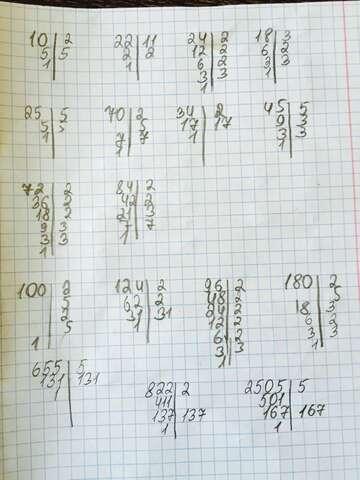 10 | 2
5 | 5
1
22 | 11
2 | 2
1
24 | 2
12 | 2
6 | 2
3 | 3
1
18 | 3
6 | 2
3 | 3
1
25 | 5
5
1
70 | 2
5
7 | 7
1
34 | 2
17 | 17
1
45 | 5
9 | 3
3 | 3
1
72 | 2
36 | 2
18 | 2
9 | 3
3 | 3
1
84 | 2
42 | 2
21 | 3
7 | 7
1
100 | 2
5
2
1 | 5
124 | 2
62 | 2
31 | 31
1
96 | 2
48 | 2
24 | 2
12 | 2
6 | 2
3 | 3
1
180 | 2
5
18 | 3
6 | 2
3 | 3
1
655 | 5
131 | 131
822 | 2
411
137 | 137
1
2505 | 5
501
167 | 167
1